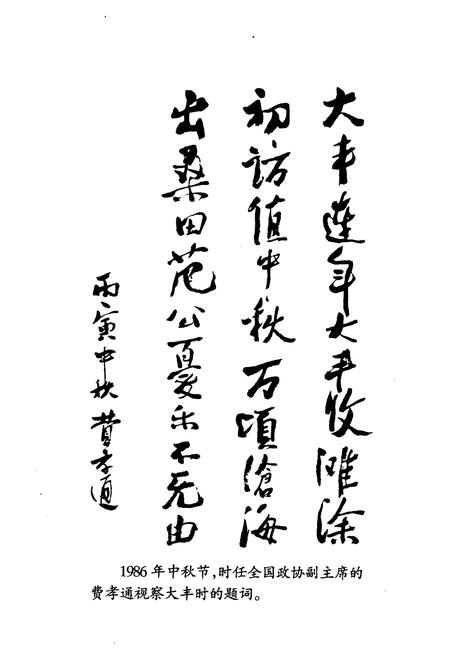 大丰连年大丰收滩涂
初访值中秋万顷沧海
出桑田范公忧乐不无由
丙寅中秋 费孝通
1986 年中秋节,时任全国政协副主席的
费孝通视察大丰时的题词。